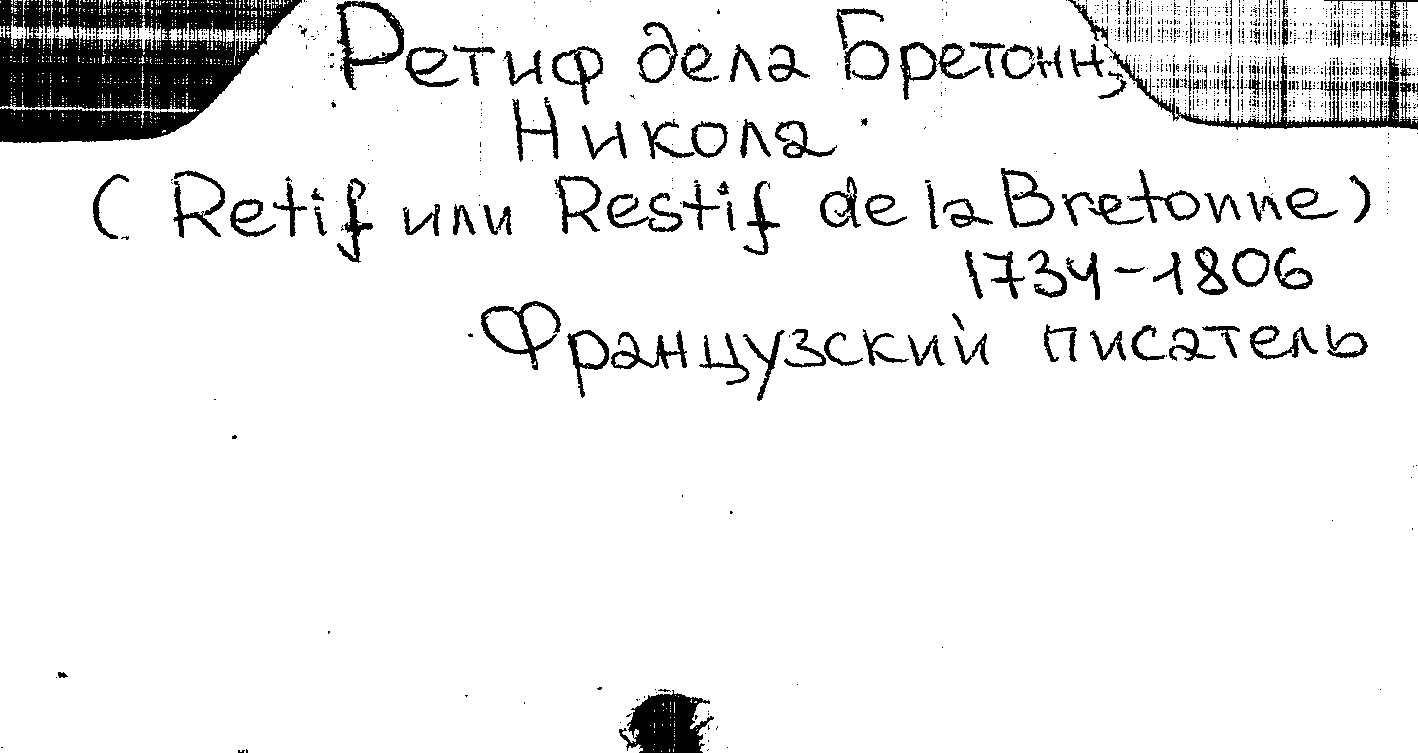 Ретиф дела Бретонн,
Никола
( Retif или Restif de la Bretonne)
1734-1806
Французский писатель